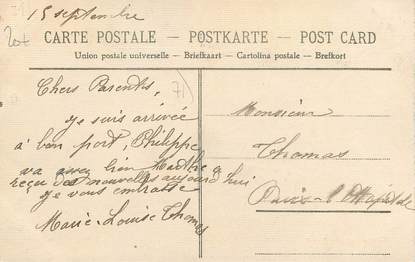 15 septembre
CARTE POSTALE – POSTKARTE – POST CARD
Union postale universelle – Briefkaart – Cartolina postale – Brefkort
Chers Parents,
je suis arrivée
à bon port, Philippe
va avec bien Marthe a
reçu des nouvelles aujourd'hui
je vous embrasse
Marie-Louise Thomas
Monsieur
Thomas